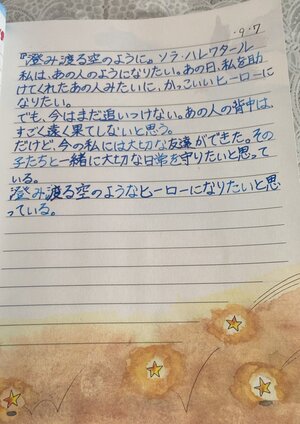 ・9・7
『澄み渡る空のように。ソラ・ハレワタール
私は、あの人のようになりたい。あの日、私を助
けてくれたあの人みたいに、かっこいいヒーローに
なりたい。
でも、今はまだ追いつけない。あの人の背中は、
すごく遠く果てしないと思う。
だけど、今の私には大切な友達ができた。その
子たちと一緒に大切な日常を守りたいと思って
いる。
澄み渡る空のようなヒーローになりたいと思
っている。